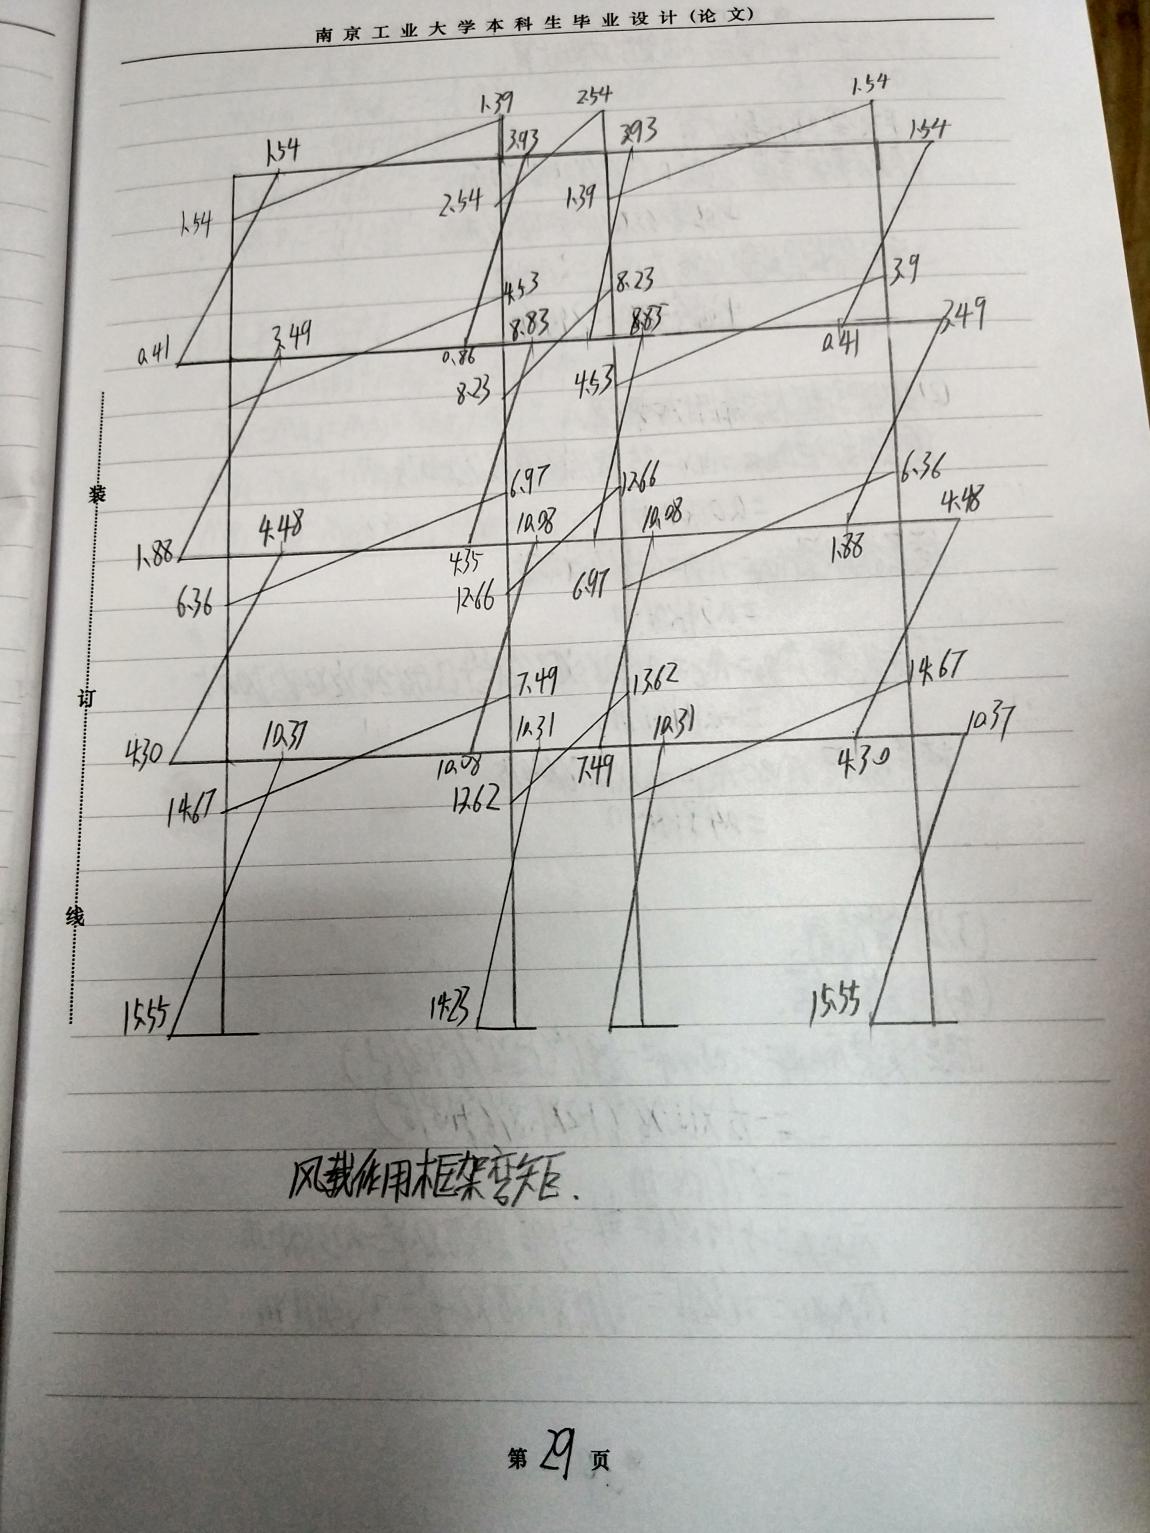 南京工业大学本科生毕业设计(论文)
1.39 2.54 1.54
1.54 3.93 3.93 1.54
1.54 2.54 1.39
4.53 8.23 3.9
0.41 3.49 0.86 8.83 8.83 0.41 3.49
8.23 4.53
装
6.97 12.66 6.36
1.88 4.48 4.35 10.08 10.08 1.88 4.48
6.36 12.66 6.97
订
7.49 13.62 14.67
4.30 10.37 10.08 10.31 7.49 10.31 4.30 10.37
14.67 13.62
线
15.55 14.23 15.55
风载作用框架弯矩.
第29页